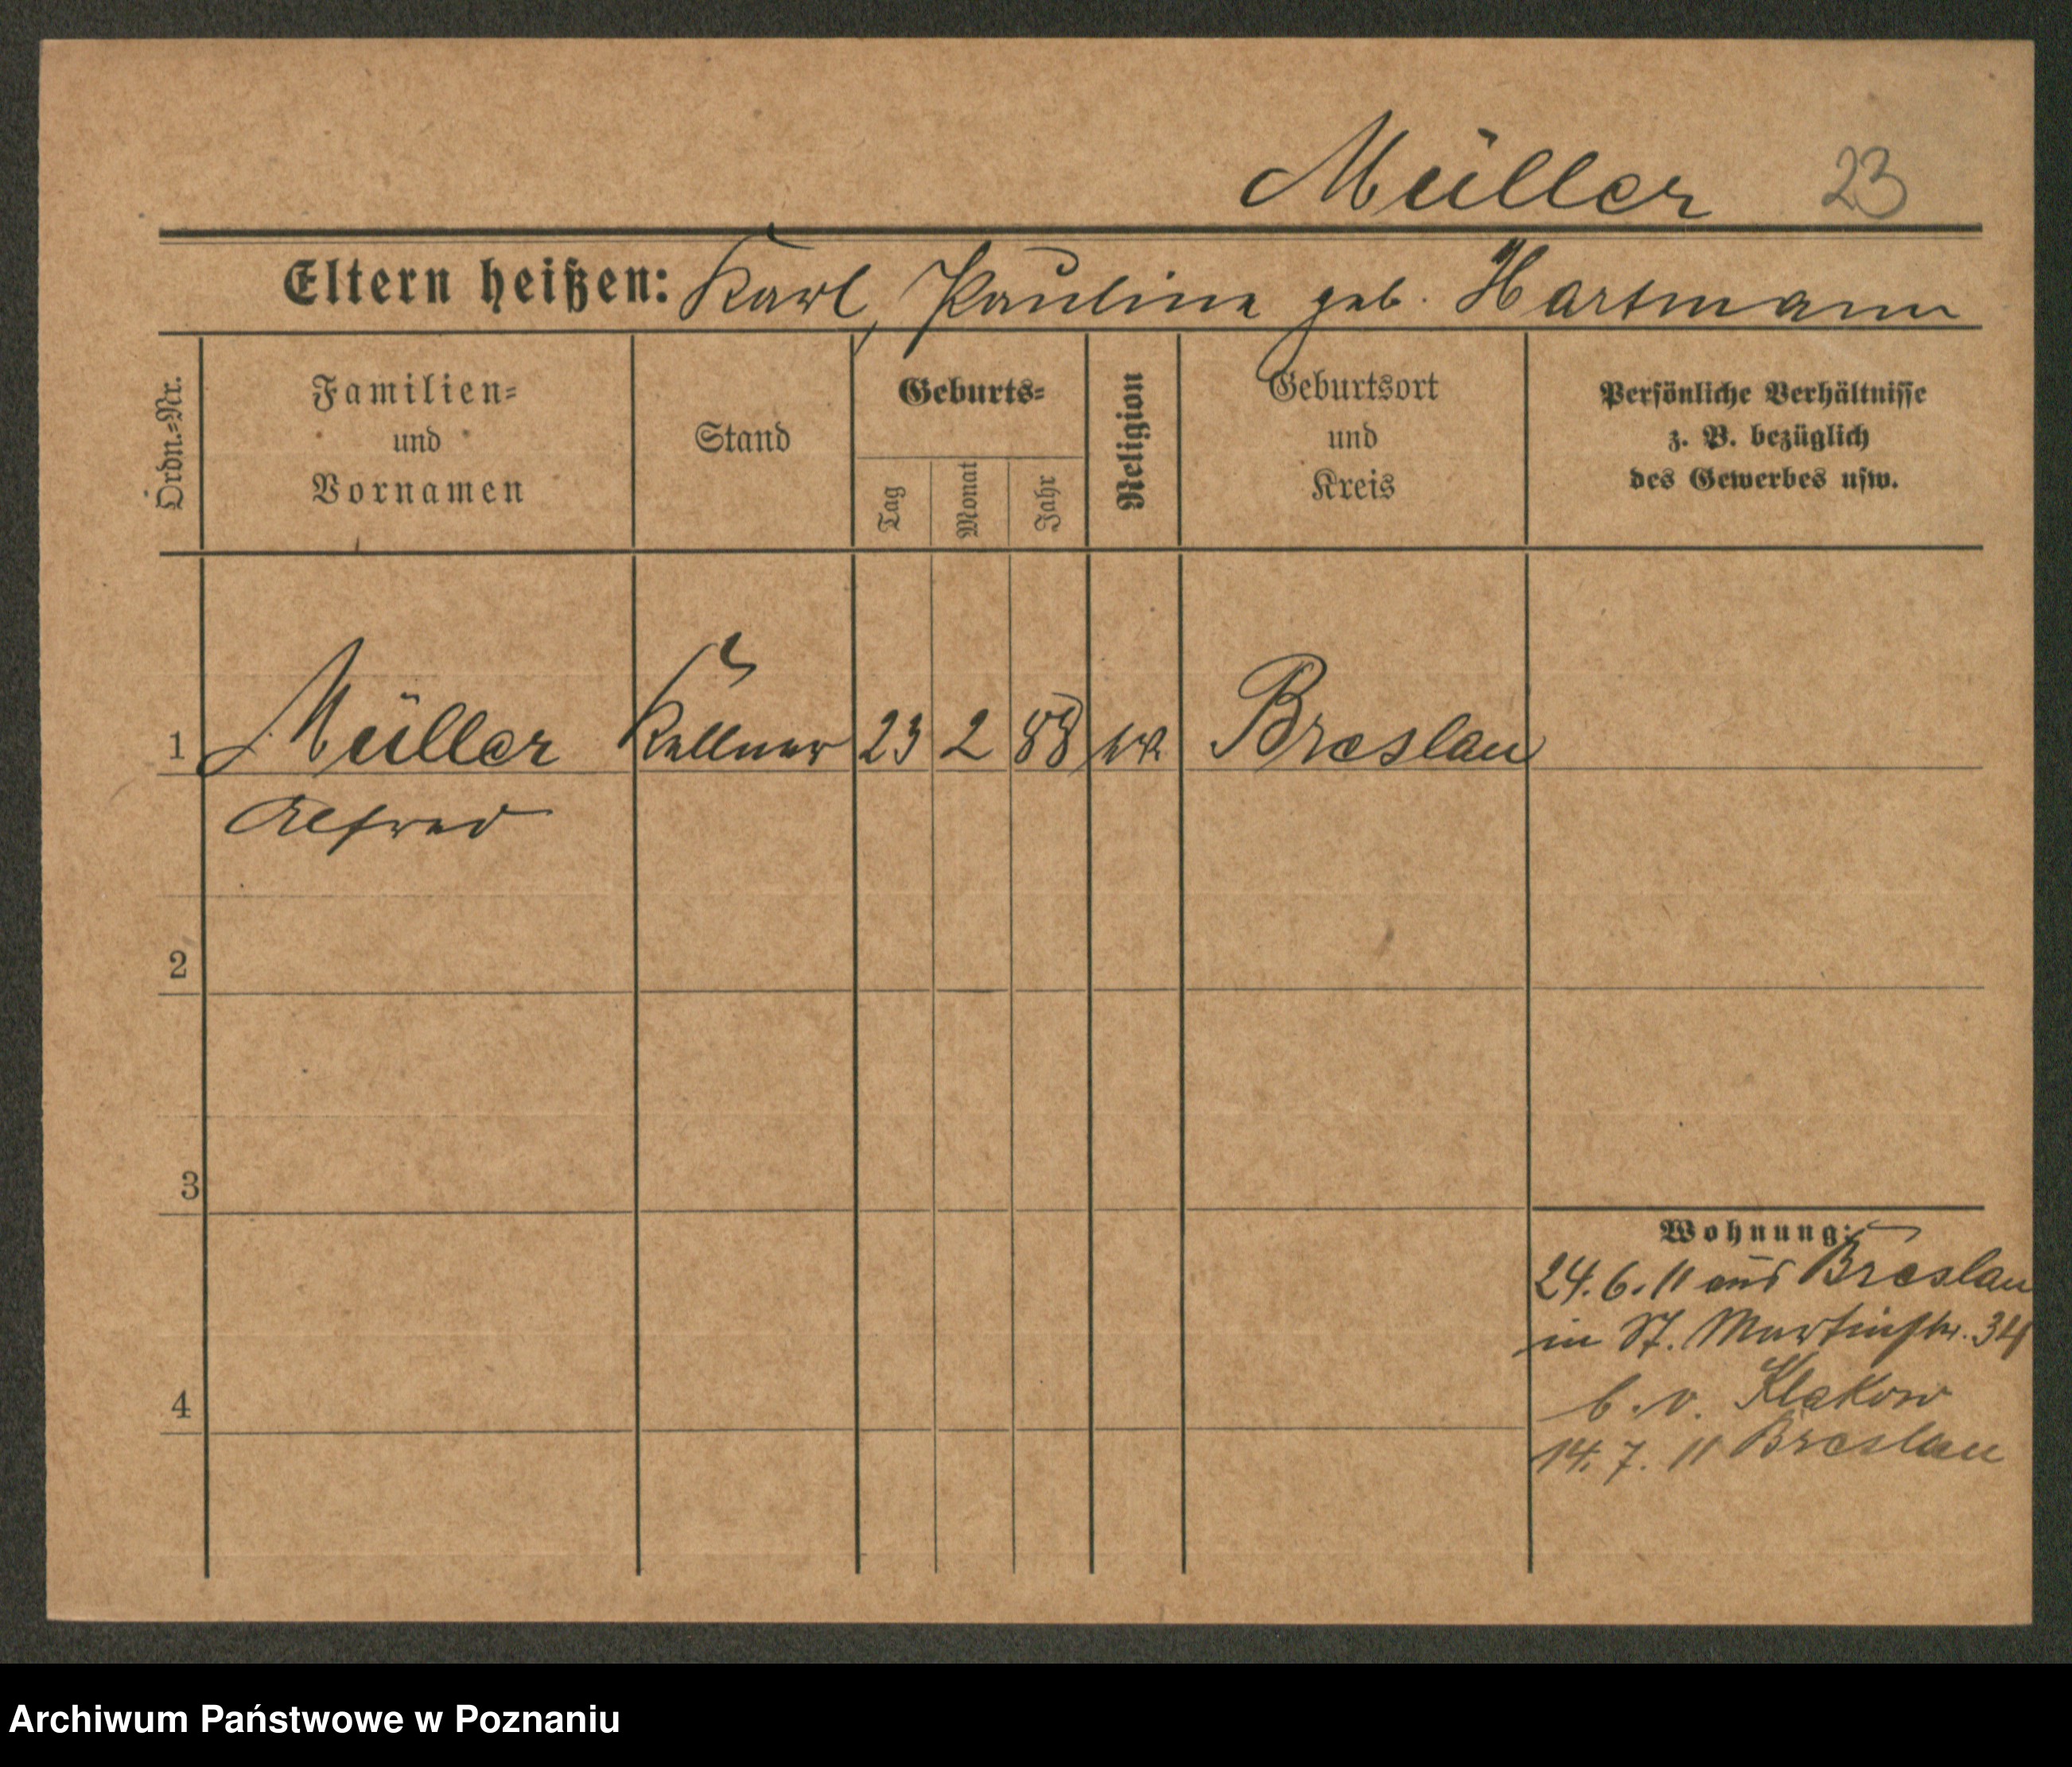 Müller 23
Eltern heißen: Karl, Pauline geb. Hartmann
Ordn.=Nr.
Familien=
und
Vornamen
Stand
Geburts=
Tag
Monat
Jahr
Religion
Geburtsort
und
Kreis
Persönliche Verhältnisse
z. B. bezüglich
des Gewerbes usw.
1 Müller Kellner 23 2 88 Breslau
Alfred
2
3
4
Wohnung:
24.6.11 aus Breslau
in St. Martinstr. 34
b. v.
14.7.11 Breslau
Archiwum Państwowe w Poznaniu